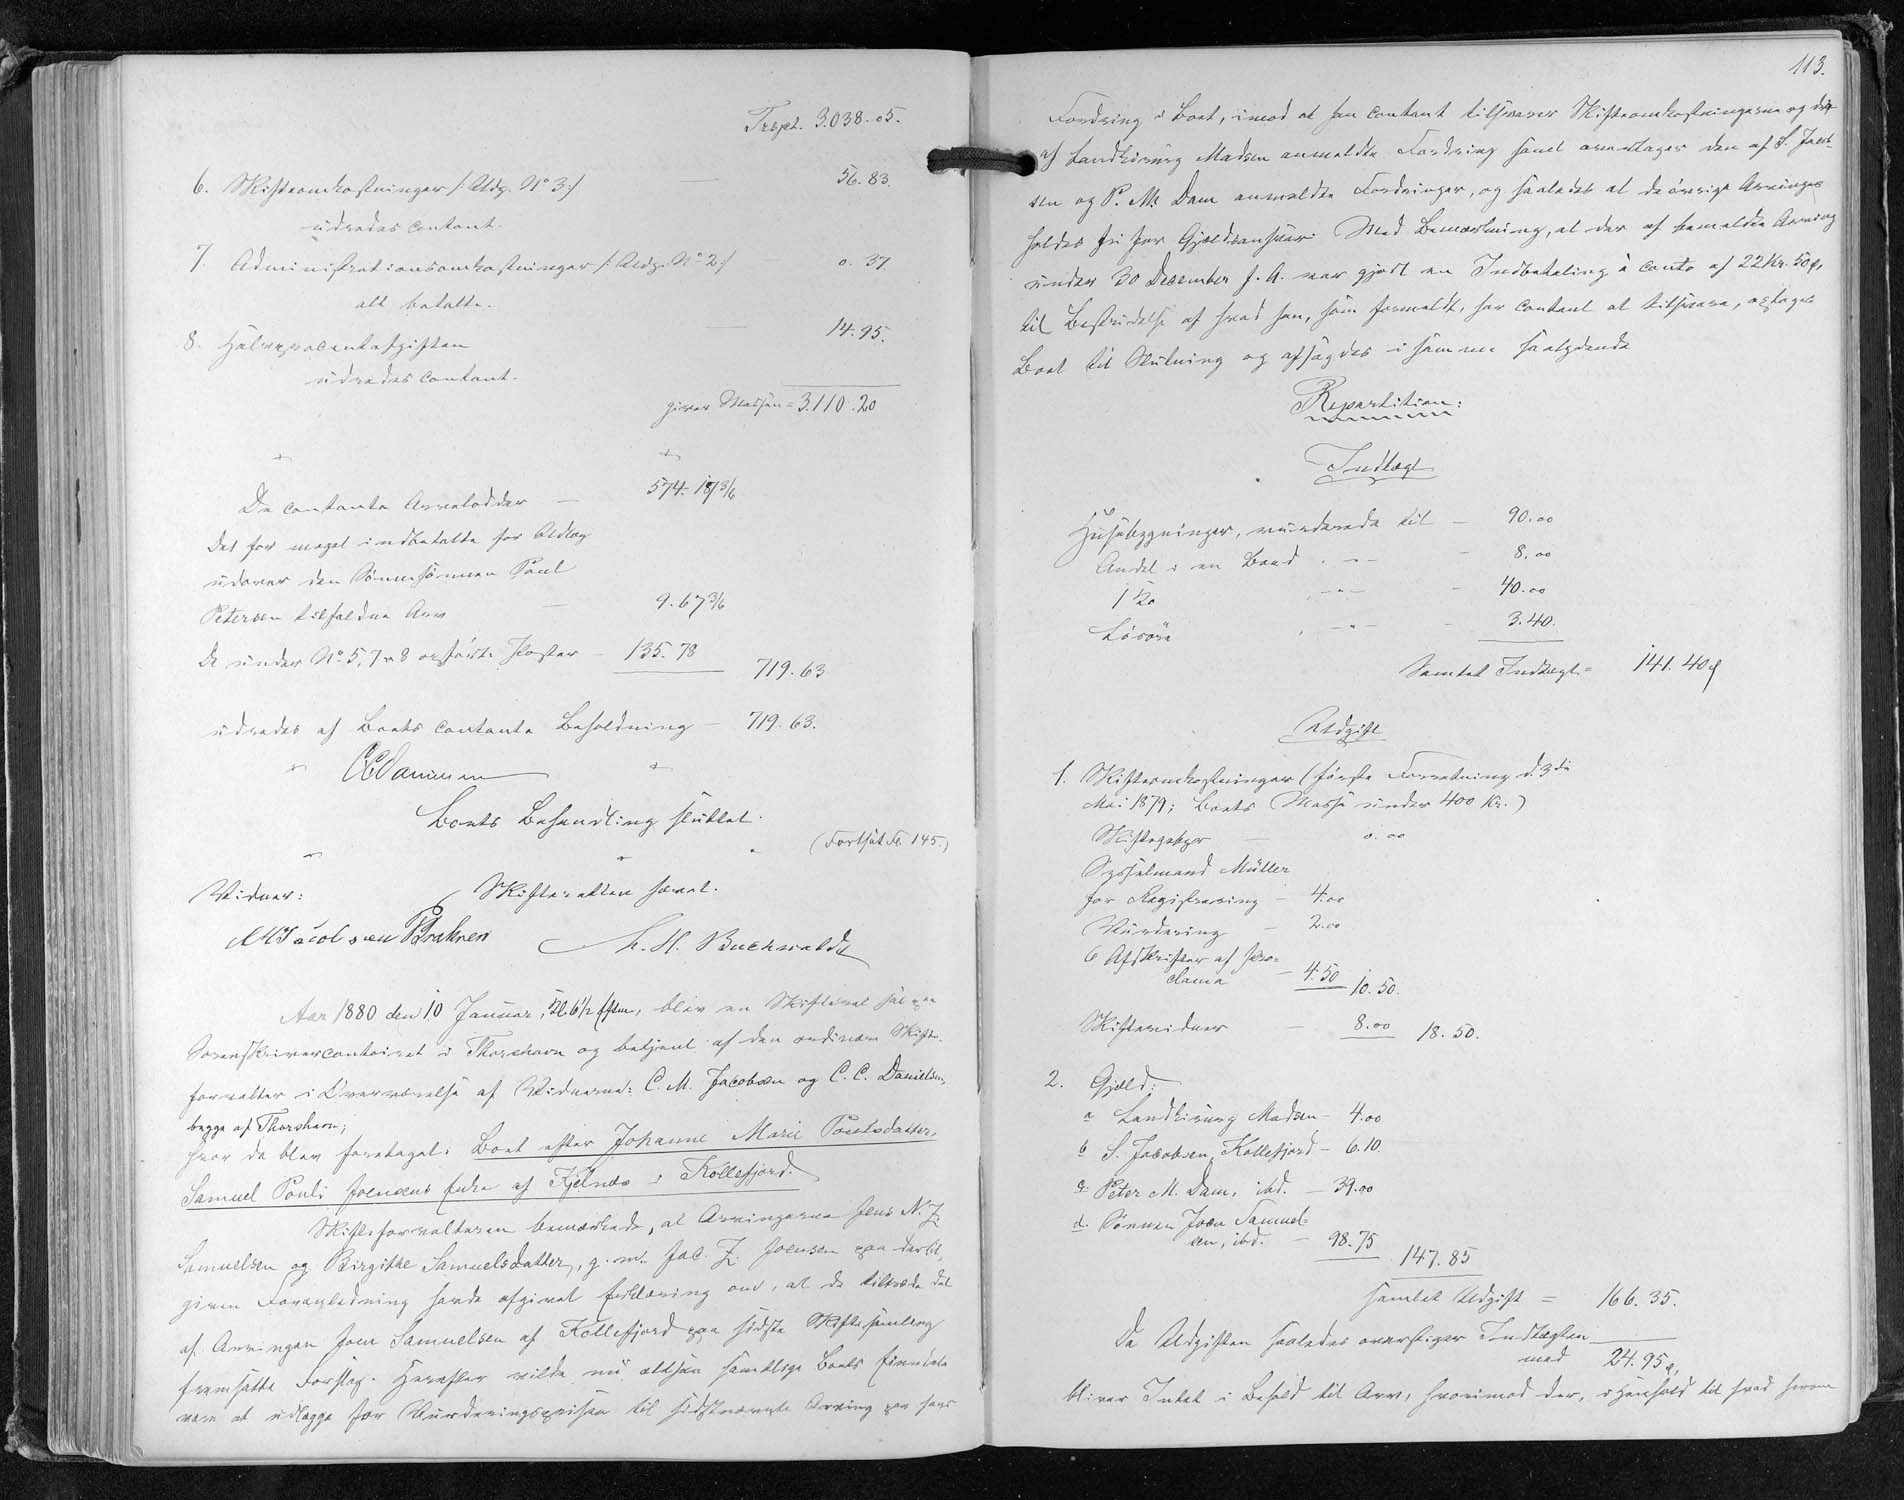 Trspt. 3.038.05.
6. Skifteomkostninger /: Udg. No 3 :/ — 56.83.
udredes contant.
7. Administrationsomkostninger /: Udg. No 2 :/ — 0.37.
alt betalte.
8. Halvprocentafgiften — 14.95.
udredes contant.
giver Massen = 3.110.20
De contante Arvelodder — 574.18 3/6
Det for meget indbetalte for Udlæg
udover den Sønnesønnen Poul
Petersen tilfaldne Arv — 9.67 3/6
De under No. 5, 7 & 8 opførte Poster — 135.78
719.63
udredes af Boets contante Beholdning — 719.63.
Boets Behandling sluttet.
(Fortsat Fo. 145.)
Vidner: Skifteretten hævet.
Jacobsen H. Buchwaldt
Aar 1880 den 10 Januar, Kl. 6 1/2 Eftm, blev en Skifteret sat paa
Sorenskrivercontoiret i Thorshavn og betjent af den ordinære Skifte-
forvalter i Overværelse af Vidnerne: C. M. Jacobsen og C. C. Danielsen,
begge af Thorshavn;
hvor da blev foretaget: Boet efter Johanne Marie Poulsdatter,
Samuel Pouli Joensens Enke af Kjelnæs i Kollefjord.
Skifteforvalteren bemærkede, at Arvingerne Jens N. J.
Samuelsen og Birgithe Samuelsdatter, g. m. Jac. J. Joensen paa dertil
given Foranledning havde afgivet Erklæring om, at de tiltræde det
af Arvingen Joen Samuelsen af Kollefjord paa sidste Skiftesamling
fremsatte Forslag. Herefter vilde nu altsaa samtlige Boets Eiendele
være at udlægge for Vurderingsprisen til sidstnævnte Arving paa hans
113.
Fordring i Boet, imod at han contant tilsvarer Skifteomkostningerne og den
af Landkirurg Madsen anmeldte Fordring samt overtager den af S. Jacob-
sen og P. M. Dam anmeldte Fordringer, og saaledes at de øvrige Arvinger
holdes fri for Gjældsansvar. Med Bemærkning, at der af bemeldte Arving
under 30 December f. A. var gjort en Indbetaling à conto af 22 Kr. 50 Ø,
til Bestridelse af hvad han, som formeldt, har contant at tilsvare, optoges
Boet til Slutning og afsagdes i samme saalydende
Repartition:
Indtægt
Husebygninger, vurderede til — 90.00
Andel i en Baad . — — 8.00
1 Ko — — 40.00
Løsøre — — 3.40.
Samlet Indtægt = 141.40 Ø
Udgift
1. Skifteomkostninger (første Forretning d. 3die
Mai 1879; Boets Masse under 400 Kr.)
Skiftegebyr — 0.00
Sysselmand Müller
for Registrering — 4.00
Vurdering — 2.00
6 Afskrifter af Pro-
clama — 4.50 10.50.
Skiftevidner — 8.00 18.50.
2. Gjæld:
a Landkirurg Madsen — 4.00
b S. Jacobsen, Kollefjord — 6.10
c Peter M. Dam, ibd. — 39.00
d. Sønnen Joen Samuel-
sen, ibd. — 98.75
147.85
samlet Udgift = 166.35.
Da Udgiften saaledes overstiger Indtægten
med 24.95 Ø,
bliver Intet i Behold til Arv, hvorimod der, i Henhold til hvad foran